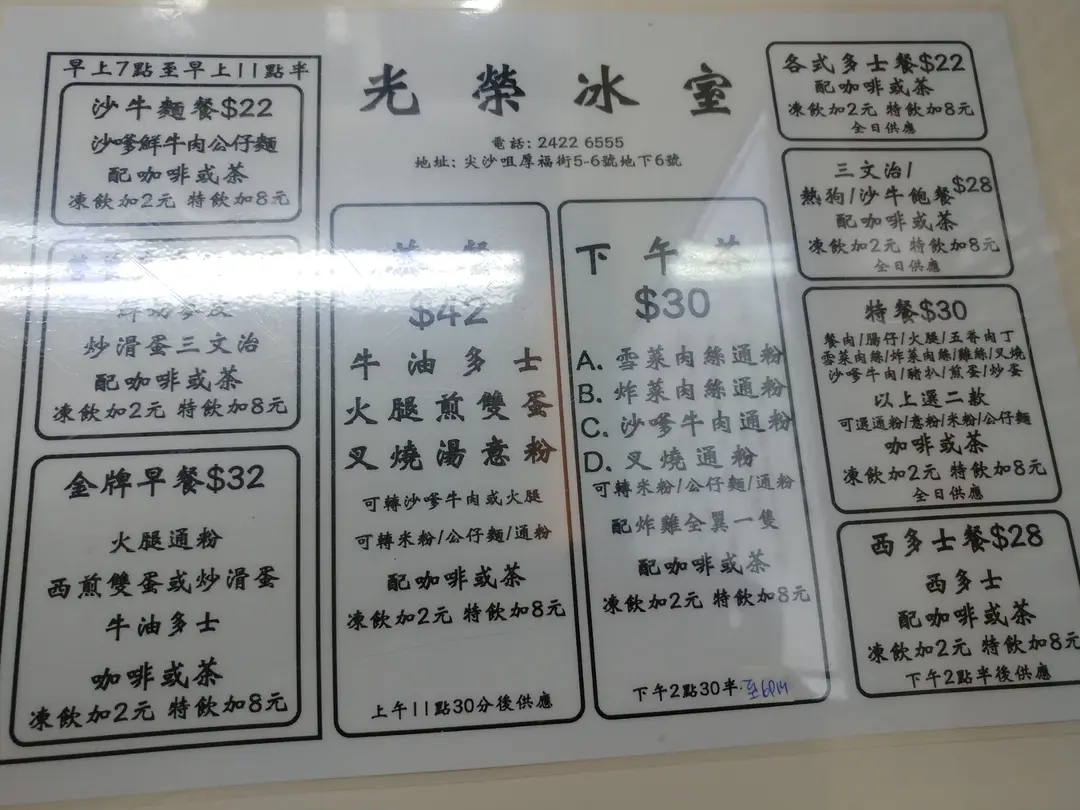 光榮冰室
電話: 2422 6555
地址: 尖沙咀厚福街5-6號地下6號
早上7點至早上11點半
沙牛麵餐$22
沙嗲鮮牛肉公仔麵
配咖啡或茶
凍飲加2元 特飲加8元
炒滑蛋三文治
配咖啡或茶
凍飲加2元 特飲加8元
金牌早餐$32
火腿通粉
西煎雙蛋或炒滑蛋
牛油多士
咖啡或茶
凍飲加2元 特飲加8元
餐
$42
牛油多士
火腿煎雙蛋
叉燒湯意粉
可轉沙嗲牛肉或火腿
可轉米粉/公仔麵/通粉
配咖啡或茶
凍飲加2元 特飲加8元
上午11點30分後供應
下午茶
$30
A. 雪菜肉絲通粉
B. 炸菜肉絲通粉
C. 沙嗲牛肉通粉
D. 叉燒通粉
可轉米粉/公仔麵/通粉
配炸雞全翼一隻
配咖啡或茶
凍飲加2元 特飲加8元
下午2點30半·至6PM
各式多士餐$22
配咖啡或茶
凍飲加2元 特飲加8元
全日供應
三文治/
熱狗/沙牛飽餐$28
配咖啡或茶
凍飲加2元 特飲加8元
全日供應
特餐$30
餐肉/腸仔/火腿/五香肉丁
雪菜肉絲/炸菜肉絲/雞絲/叉燒
沙嗲牛肉/豬扒/煎蛋/炒蛋
以上選二款
可選通粉/意粉/米粉/公仔麵
咖啡或茶
凍飲加2元 特飲加8元
全日供應
西多士餐$28
西多士
配咖啡或茶
凍飲加2元 特飲加8元
下午2點半後供應